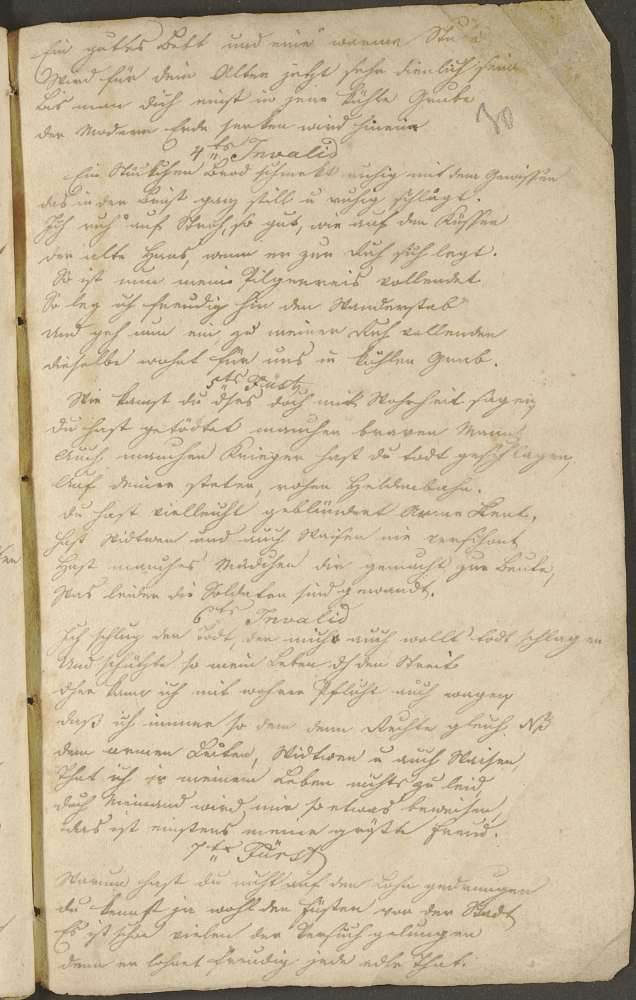 Ein gutes Bett und eine warme Stube
Wird für dein Alter jetzt sehr dienlich sein
Bis man dich einst in jene kühle Grube
der Modern Erde senken wird hinein
4ts Invalid
Ein Stückchen Brod schmekt ruhig mit dem Gewissen
das in der Brust ganz still u ruhig schlägt.
Ich ruh auf Stroh, so gut, wie auf den Küssen
der alte Hans, wenn er zur Ruh sich legt.
So ist nun meine Pilgerreis vollendet
So leg ich freudig hin den Wanderstab
Und geh nun ein, zu meiner Ruh vollenden
dieselbe wohnt für uns in kühlen Grab.
5ts Fürst
Wie kanst du dies doch mit Wahrheit sagen
du hast getödtet manchen braven Mann
Auch manchen Krieger hast du todt geschlagen,
Auf deiner steten, rohen Heldenbahn.
du hast vielleicht geblündert Arme Leut,
hast Widwen und auch Waisen nie verschont
Hast manches Mädchen dir gemacht zur Beute,
Was leider die Soldaten sind gewandt.
6ts Invalid
Ich schlug den todt, der mich auch wollt todt schlagen
Und schützte so mein Leben in den Streit
daß ich immer so dem Rechte gleich
den armen Leuten, Widwen u auch Waisen
That ich in meinem Leben nichts zu leid
Doch Niemand wird mir so etwas beweisen,
das ist einstens meine größte Freud.
7ts Fürst
Warum hast du nicht auf den Lohn gedrungen
du kennst ja wohl den Fürsten von der Stadt
Es ist schon vielen der Versuch gelungen
denn er lohnet freudig jede edle That.